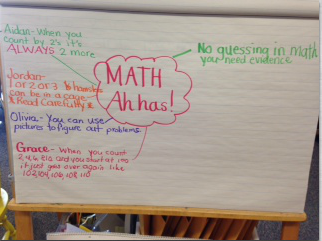 Aidan- When you
count by 2's it's
ALWAYS 2 more
MATH
Ah has!
No guessing in math
you need evidence
Jordan-
1 or 2 or 3 hamsters
can be in a cage
Read Carefully
Olivia- You can use
pictures to figure out problems
Grace- When you count
2,4,6, and you start at 100
it just goes over again like
102,104,106,108,110